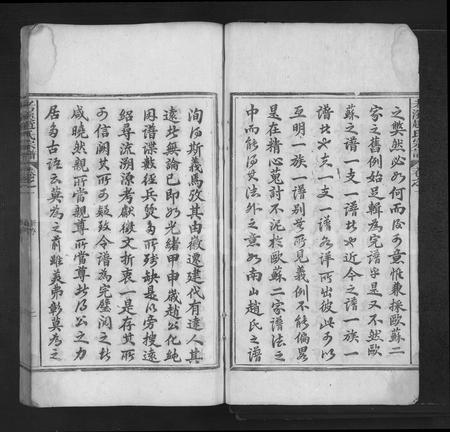 之弊然必如何而後可意惟兼採歐蘇二
家之舊例始足輯為完譜乎是又不然歐
蘇之譜一支一譜也近今之譜一族一
譜也一支一譜各詳所出彼此可以
互明一族一譜別無所見義例不能偏畧
是在精心蒐討不泥於歐蘇二家譜法之
中而能得史法外之意如南山趙氏之譜
洵得斯義焉攷其由徽遷建代有達人其
遠者無論已即如光緒甲申歲趙公化純
因譜牒數經兵燹多所殘缺是以旁搜遠
紹尋流溯源考獻徵文折衷一是存其所
可信闕其所可疑致令譜為完璧閱之者
咸曉然親所當親尊所當尊者乃公之力
居多古語云莫為之前雖美弗彰莫為之